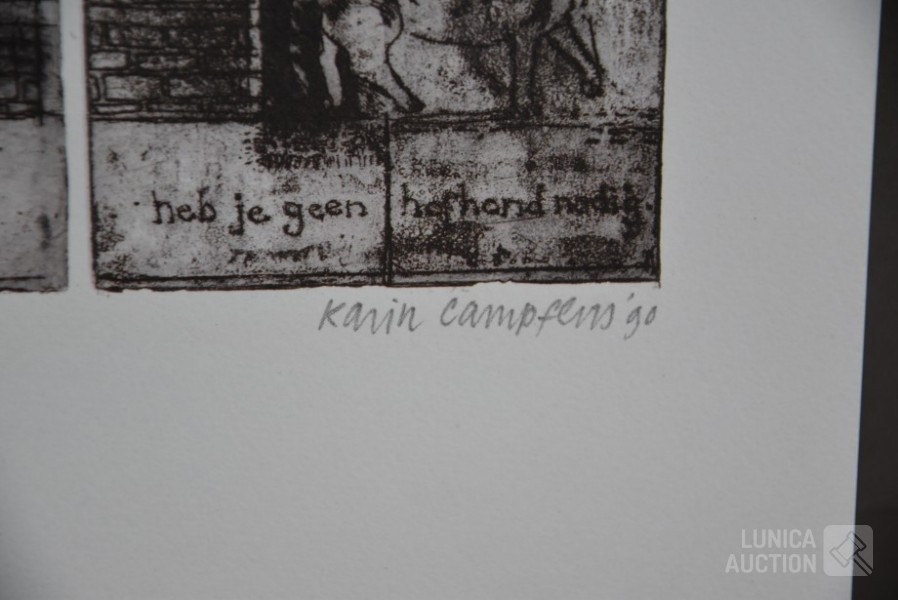 heb je geen hofhond nodig.
Karin Campfens '90
LUNICA
AUCTION